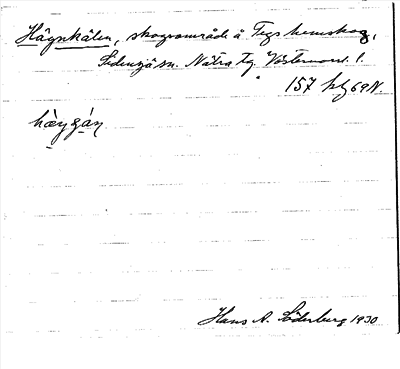 Högnkälen, skogsområde å Tegs hemskog,
Sidensjö sn. Nätra tg. Västernorrl. l.
157 69 N.
Hans A. Söderberg 1930